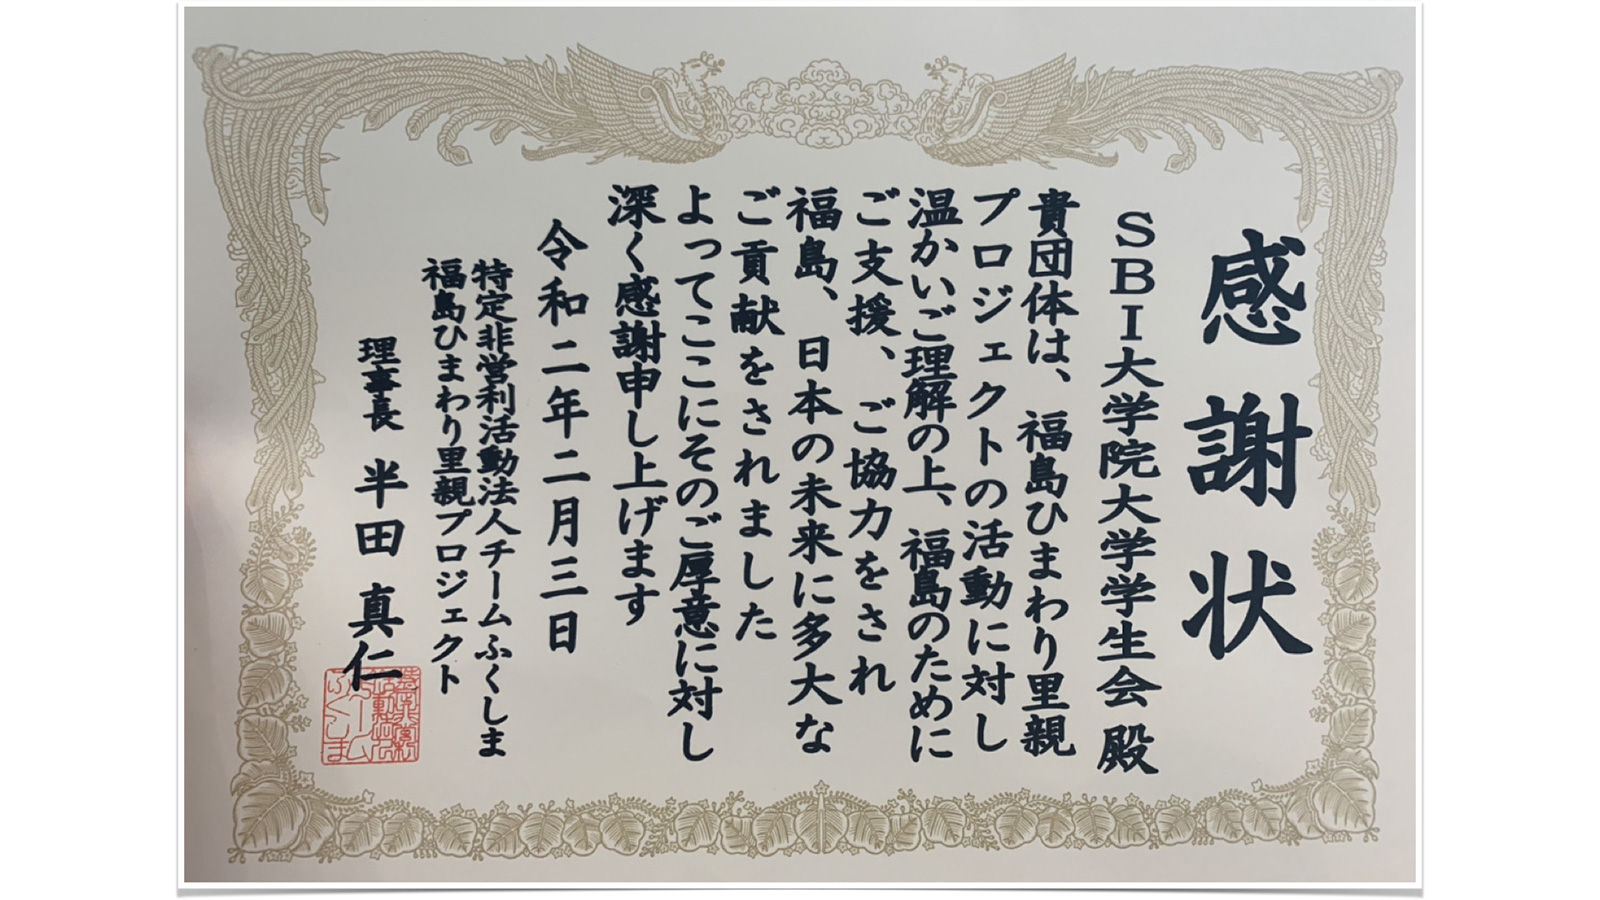 感謝状
SBI大学院大学学生会 殿
貴団体は、福島ひまわり里親
プロジェクトの活動に対し
温かいご理解の上、福島のために
ご支援、ご協力をされ
福島、日本の未来に多大な
ご貢献をされました
よってここにそのご厚意に対し
深く感謝申し上げます
令和二年二月三日
特定非営利活動法人チームふくしま
福島ひまわり里親プロジェクト
理事長 半田 真仁